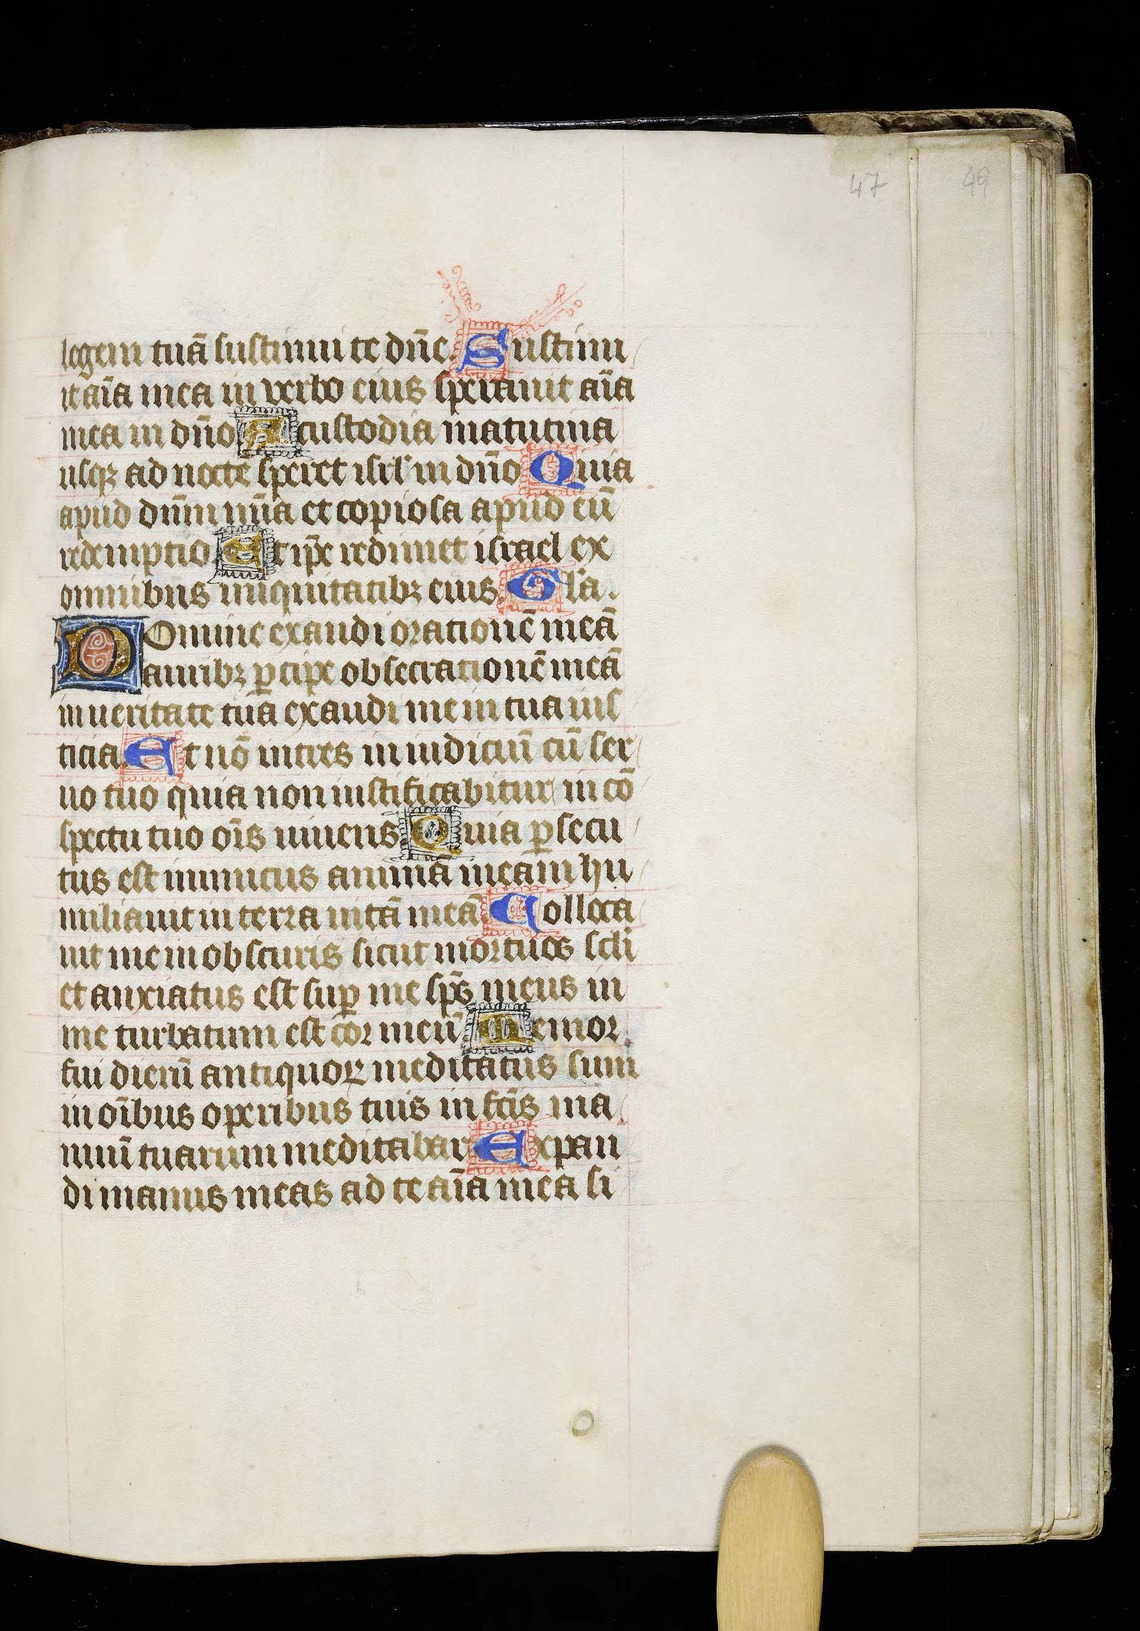 47
49
legem tuā sustinui te dn̄e. Sustinu
it aīa mea in verbo eius speravit aīa
mea in dn̄o A custodia matutina
usqꝫ ad nocte speret isrl̄ in dn̄o Quia
apud dn̄m mīa et copiosa apud eū
redemptio Et ip̄e redimet israel ex
omnibus iniquitatibꝫ eius. Gl̄a.
Domine exaudi orationē meā
auribꝫ ꝑcipe obsecrationē meā
in veritate tua exaudi me in tua ius
ticia Et nō intres in iudiciū cū ser
uo tuo quia non iustificabitur in cō
spectu tuo oīs uiuens Quia ꝑsecu
tus est inimicus animā meam hu
miliauit in terra uitā meā Colloca
uit me in obscuris sicut mortuos scl̄i
et anxiatus est suꝑ me sp̄s meus in
me turbatum est cor meū Memor
fui dierū antiquoꝝ meditatus sum
in oībus operibus tuis in fc̄is ma
nuū tuarum meditabar Expan
di manus meas ad te aīa mea si